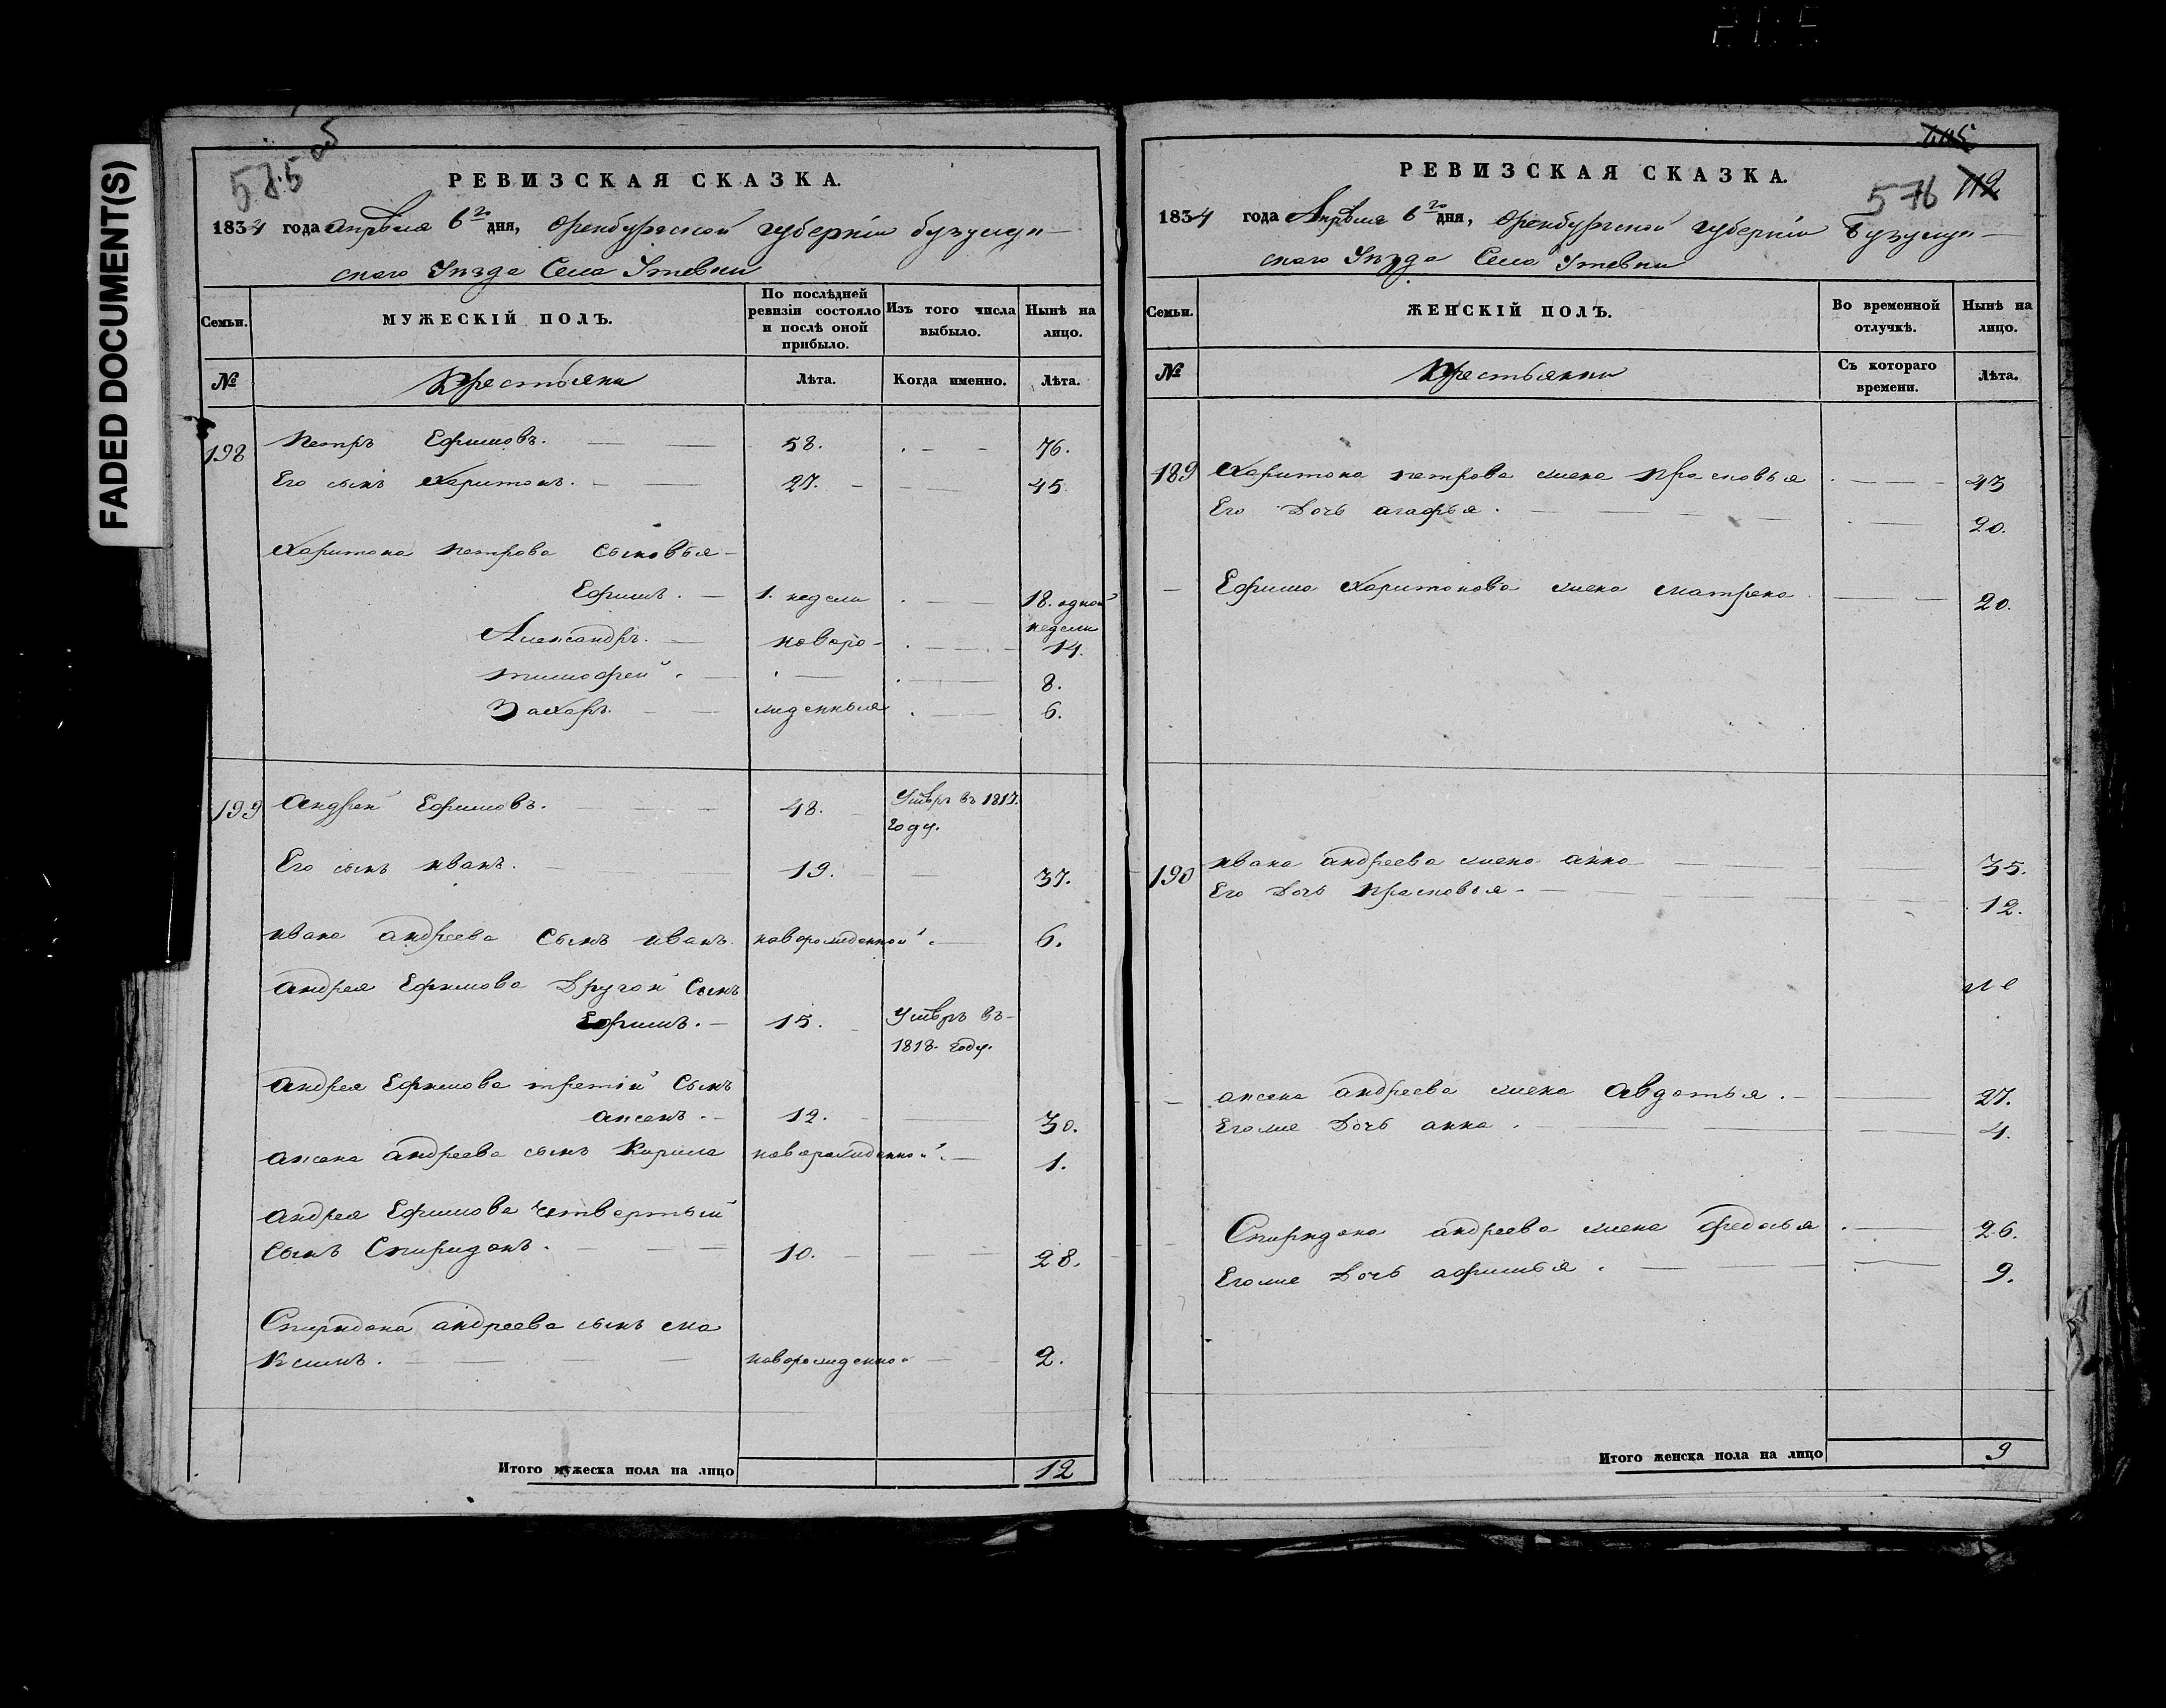 FADED DOCUMENT(S)
575 об
РЕВИЗСКАЯ СКАЗКА.
1834 года Апреля 6го дня, Оренбургской губерніи бузулук-
скаго Уезда Села Утевки
Семьи.
МУЖЕСКІЙ ПОЛЪ.
По послѣдней ревизіи состояло и послѣ оной прибыло.
Изъ того числа выбыло.
Нынѣ на лицо.
№
Крестьяни
Лѣта.
Когда именно.
Лѣта.
198 Петръ Ефимовъ. 58. 76.
Его сынъ Харитонъ. 27. 45.
Харитона петрова Сыновья
Ефимъ. 1. недели 18. одной недели
Александръ. новоро- 14.
тимофей. 8.
Захаръ. жденныя 6.
199 Андрей Ефимовъ. 48. Умѣръ въ 1817. году.
Его сынъ иванъ. 19. 37.
ивана андреева Сынъ иванъ. новорожденной. 6.
андрея Ефимова Другой Сынъ
Ефимъ. 15. Умѣръ въ 1818. году.
андрея Ефимова третій Сынъ
аксенъ. 12. 30.
аксена андреева сынъ Кирила новорожденной. 1.
андрея Ефимова Четвертый
Сынъ Спиридонъ. 10. 28.
Спиридона андреева сынъ ма
ксимъ. новорожденной 2.
Итого мужеска пола на лицо 12
405
576 112
РЕВИЗСКАЯ СКАЗКА.
1834 года Апреля 6го дня, Оренбургской губерніи Бузулук-
скаго Уезда Села Утевки
Семьи.
ЖЕНСКІЙ ПОЛЪ.
Во временной отлучкѣ.
Нынѣ на лицо.
№
Крестьянки
Съ котораго времени.
Лѣта.
189 Харитона петрова жена Прасковья 43
Его Дочь агафья. 20.
Ефима Харитонова жена матрена 20.
190 ивана андреева жена анна 35.
Его Дочь Прасковья. 12.
аксена андреева жена Авдотья. 27.
Егоже Дочь анна. 4.
Спиридона андреева жена федосья 26.
Егоже Дочь афимья. 9.
Итого женска пола на лицо 9